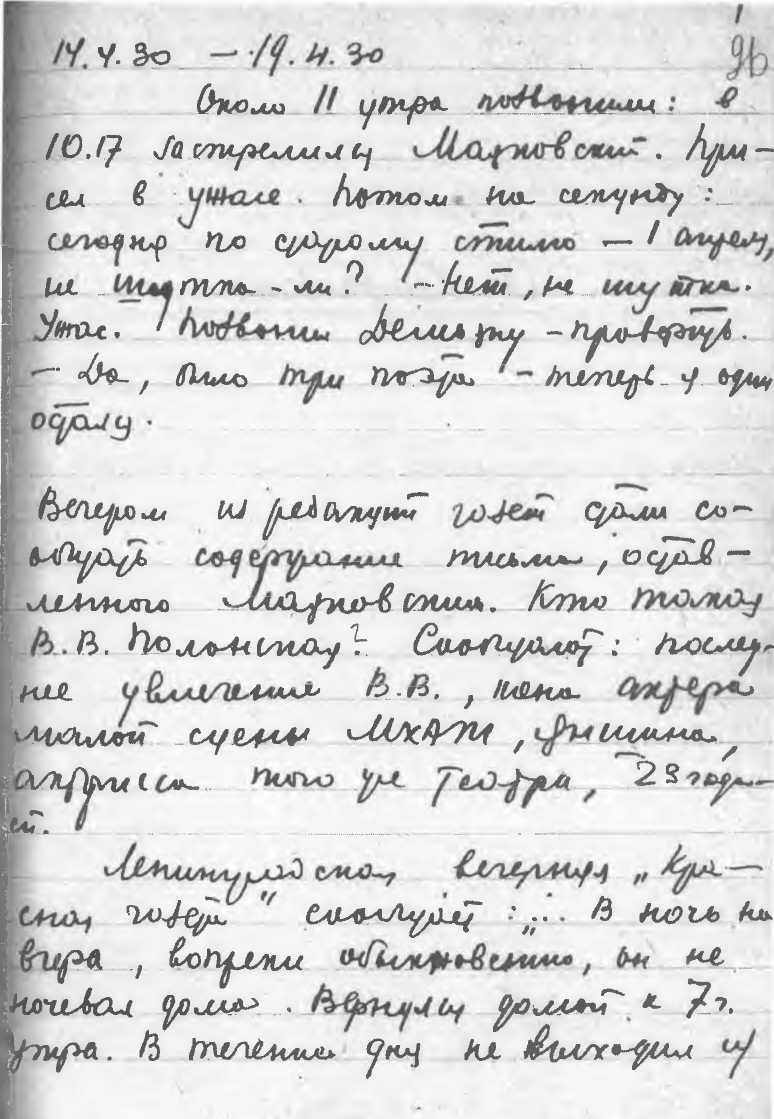 1
96
14.4.30 — 19.4.30
Около 11 утра позвонили: в
10.17 застрелился Маяковский. При-
сел в ужасе. Потом на секунду:
сегодня по старому стилю — 1 апреля,
не шутка-ли? - Нет, не шутка.
Ужас. Позвонил Демьяну - проверить.
— Да, было три поэта - теперь я один
остался.
Вечером из редакций газет стали со-
общать содержание письма, остав-
ленного Маяковским. Кто такая
В.В. Полонская? Сообщают: послед-
нее увлечение В.В., жена актера
малой сцены МХАТ, Яншина,
актриса того же театра, 23 года-
ей.
Ленинградская вечерняя „Кра-
сная газета" сообщает: „... В ночь на
вчера, вопреки обыкновению, он не
ночевал дома. Вернулся домой к 7 ч.
утра. В течение дня не выходил из